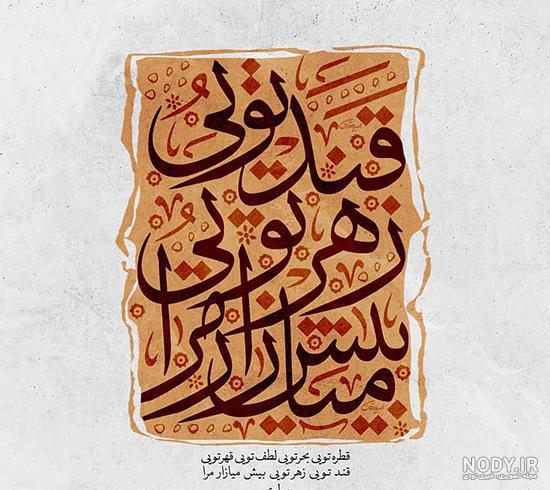 قند تویی
زهر تویی
بیش میازار مرا
قطره تویی بحر تویی لطف تویی قهر تویی
قند تویی زهر تویی بیش میازار مرا
NODY.IR